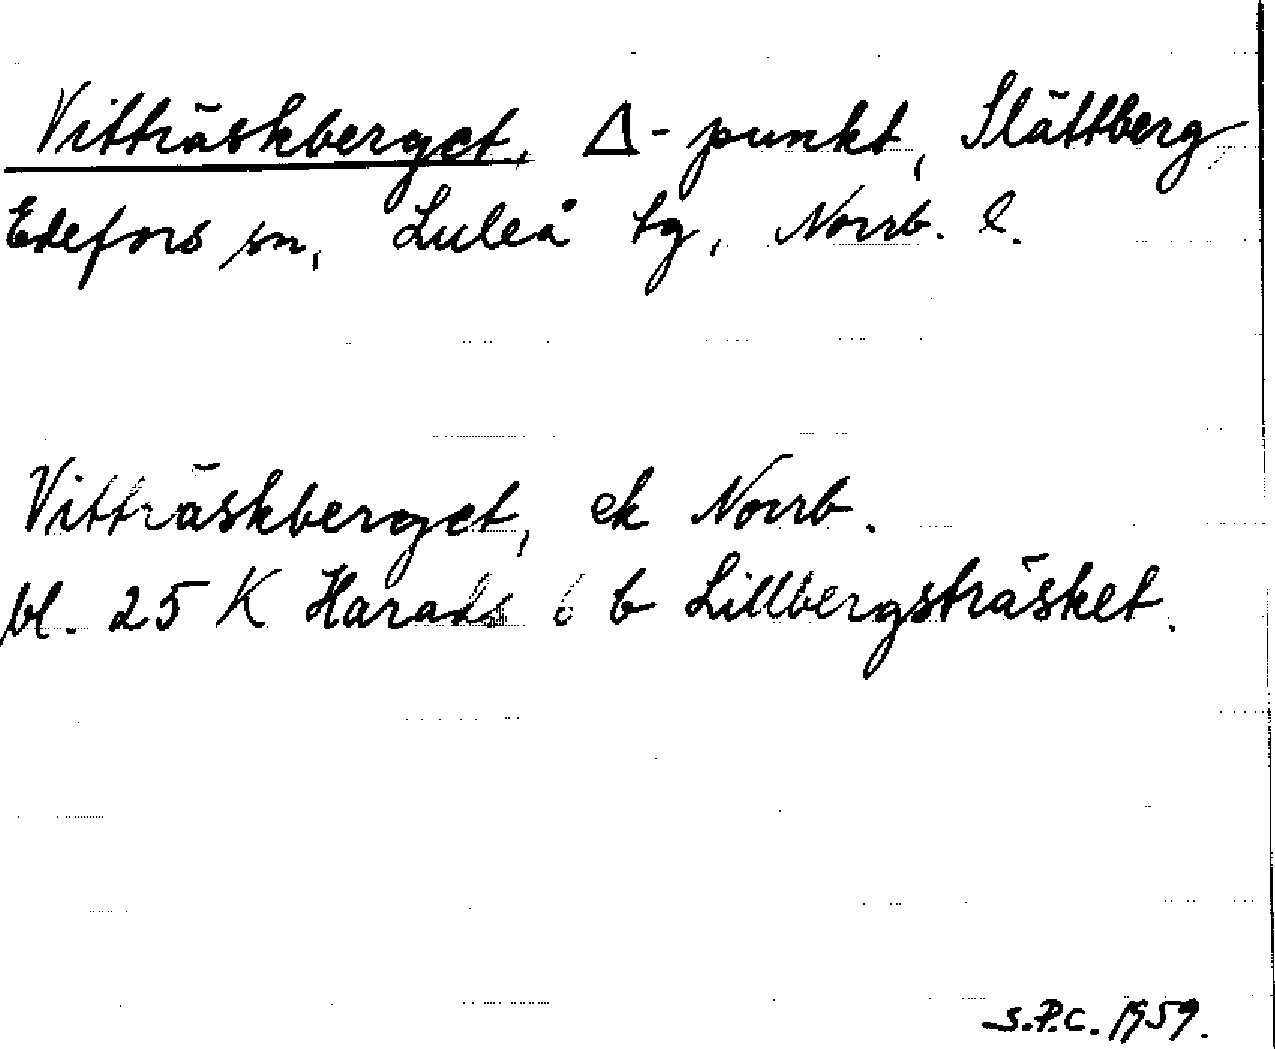 Vitträskberget, Δ-punkt, Slättberg,
Edefors sn, Luleå tg, Norrb. l.
Vitträskberget, ek Norrb.
bl. 25 K Harads 6 b Lillbergsträsket.
S.P.C. 1959.